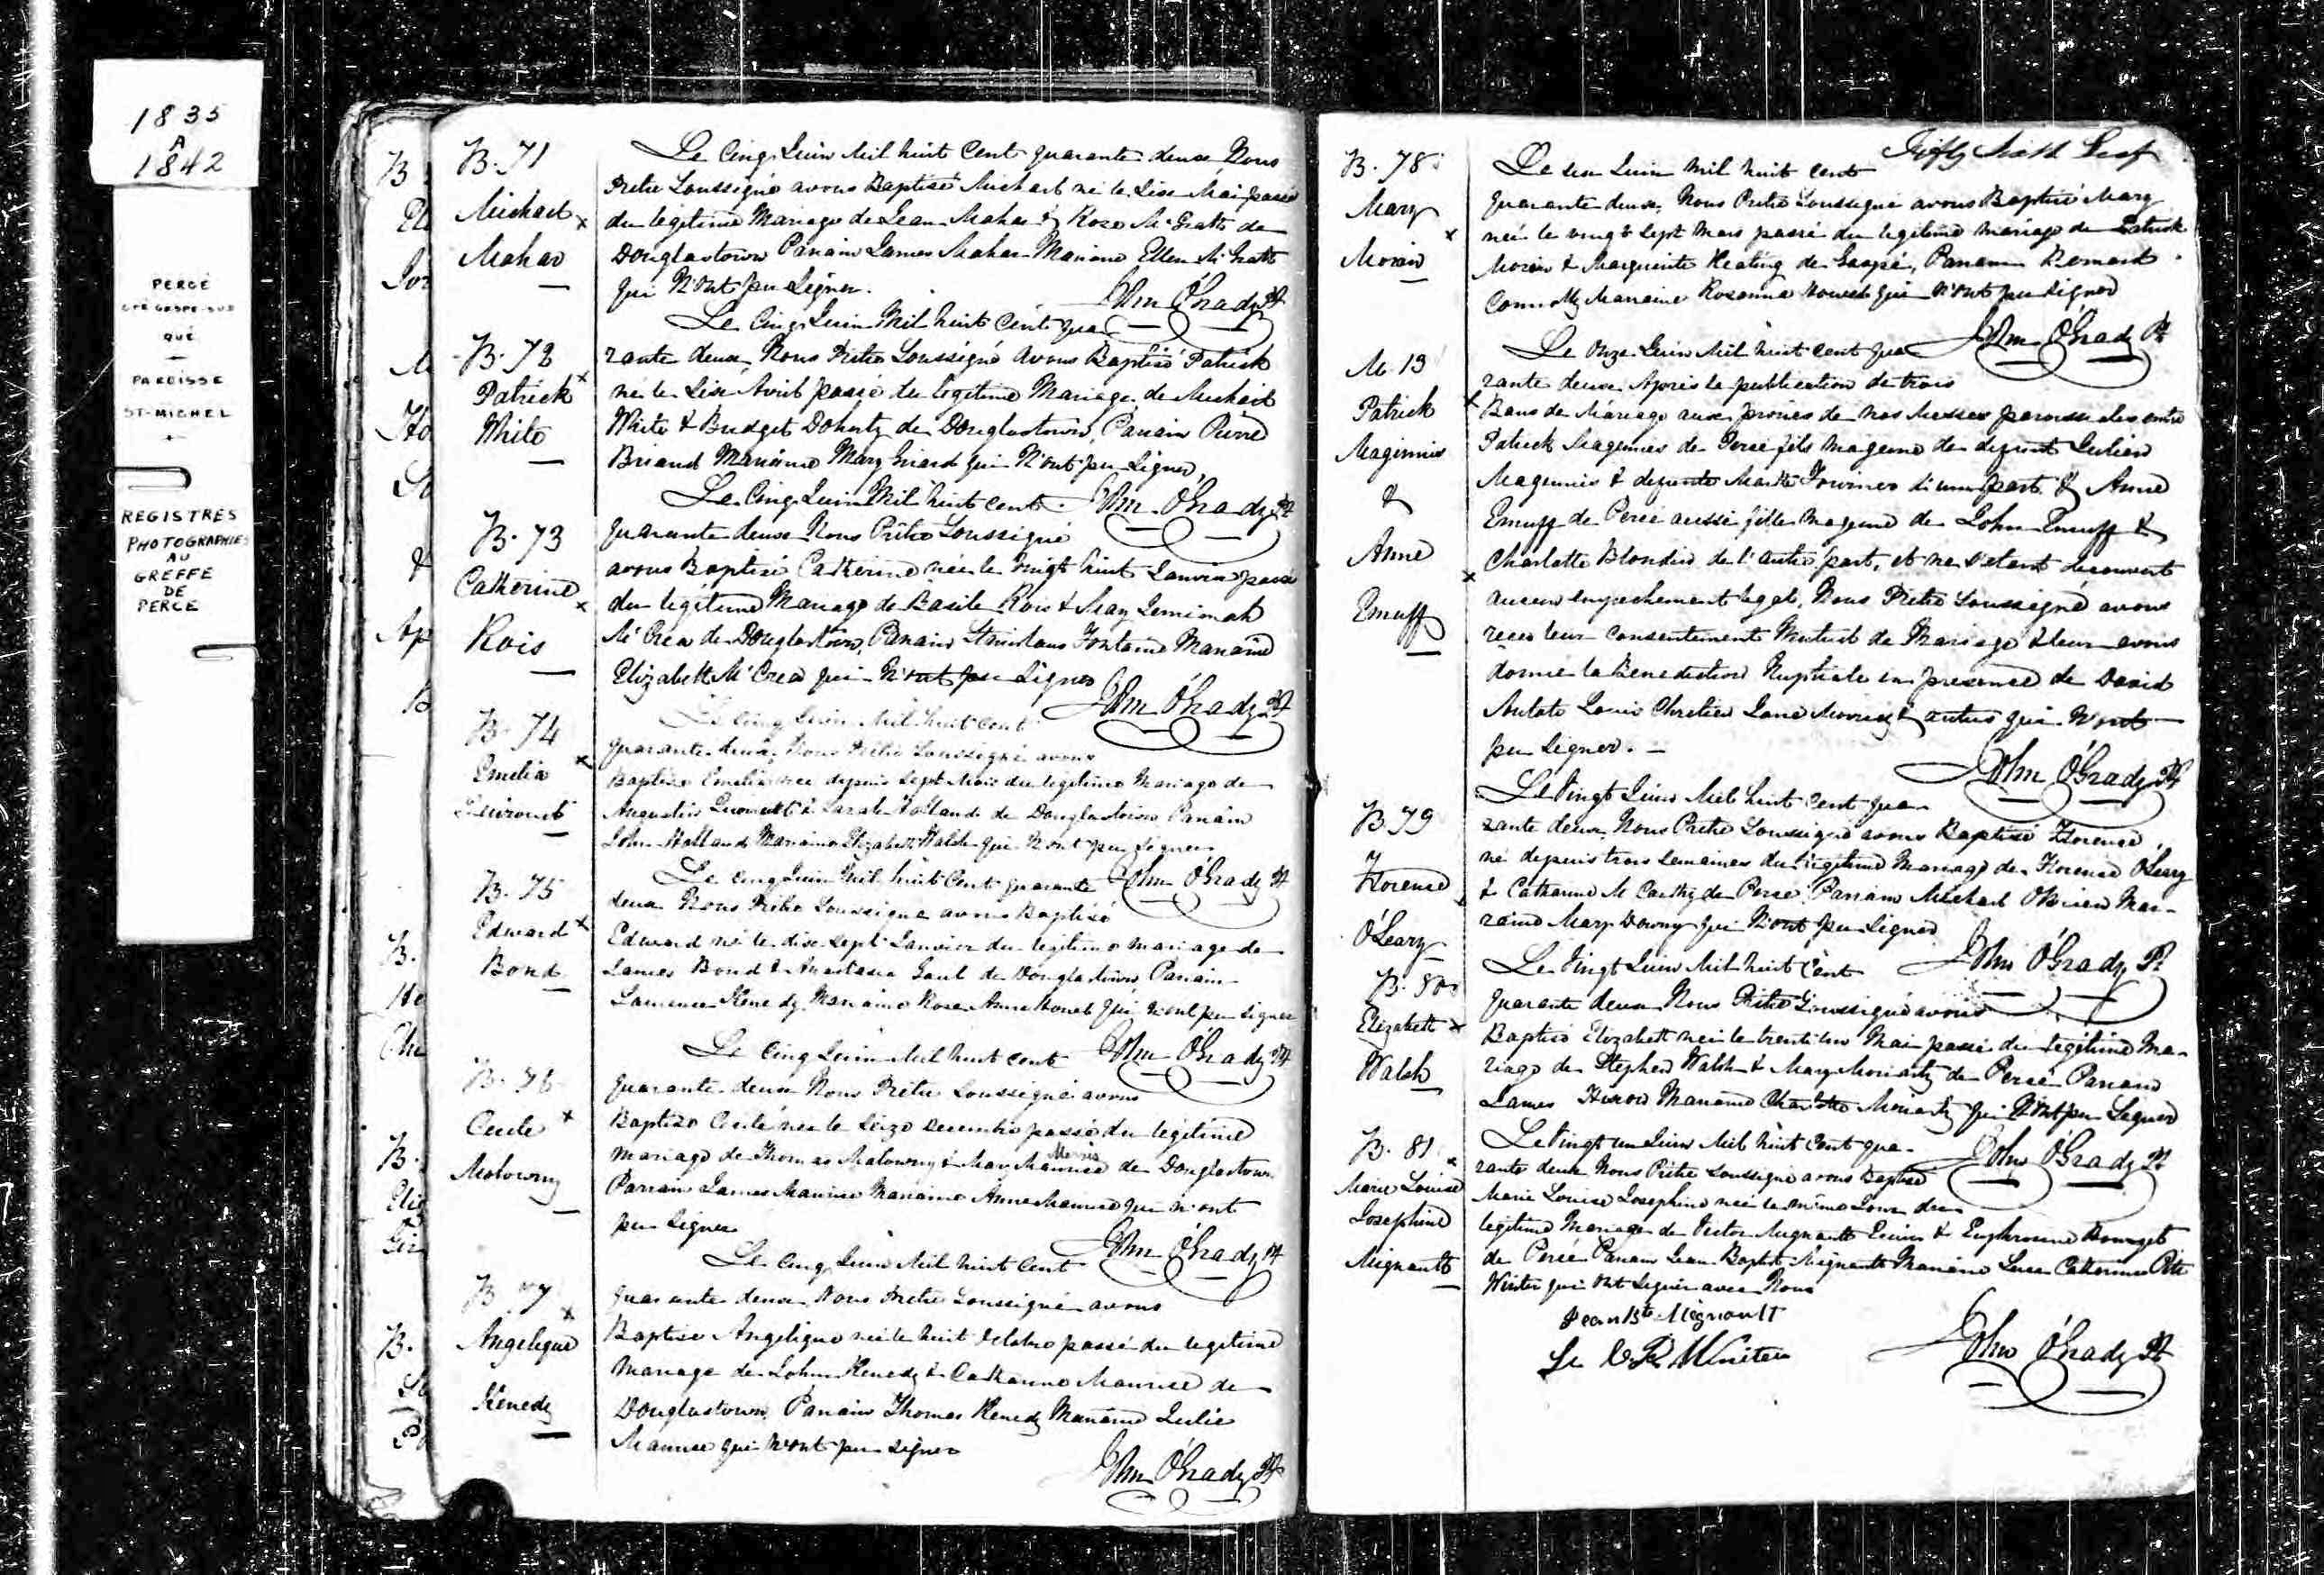 1835
A
1842
PERCÉ
QUÉ
PAROISSE
ST-MICHEL
REGISTRES
PHOTOGRAPHIÉS
AU
GREFFE
DE
PERCÉ
B. 71
Michael
Mahar
Le Cinq Juin Mil huit Cent quarante deux Nous
Prêtre Soussigné avons Baptisé Michael né le Dix Mai passé
du legitime Mariage de Jean Mahar & Rose McGrath de
Douglastown Parrain James Mahar Marraine Ellen McGrath
qui N'ont pu Signer.
John O'Grady Pt
B. 72
Patrick
White
Le Cinq Juin Mil huit Cent qua
rante deux, Nous Prêtre Soussigné avons Baptisé Patrick
né le Six Avril passé du legitime Mariage de Michael
White & Bridget Doherty de Douglastown, Parrain Pierre
Briand Marraine Mary Girard qui N'ont pu Signer,
John O'Grady Pt
B. 73
Catherine
Rois
Le Cinq Juin Mil huit cent
quarante deux Nous Prêtre Soussigné
avons Baptisé Catherine née le vingt huit Janvier passé
du legitime Mariage de Basile Rois & Mary Jemimah
McCrea de Douglastown, Parrain Stanislaus Fontaine Marraine
Elizabeth McCrea qui N'ont pu Signer
John O'Grady Pt
B. 74
Emelia
Le cinq Juin Mil huit Cent
quarante deux, Nous Prêtre Soussigné avons
Baptisé Emelia née depuis Sept Mois du legitime Mariage de
Augustin & Sarah Holland de Douglastown Parrain
John Holland Marraine Elizabeth Walsh qui N'ont pu Signer
John O'Grady Pt
B. 75
Edward
Bond
Le cinq Juin Mil huit Cent quarante
deux Nous Prêtre Soussigné avons Baptisé
Edward né le dix sept Janvier du legitime mariage de
James Bond & Anastasia Gaul de Douglastown, Parrain
Laurence Kenedy Marraine Rose Anne qui n'ont pu signer
John O'Grady Pt
B. 76
Cecile
Molowny
Le Cinq Juin Mil huit cent
quarante deux Nous Prêtre Soussigné avons
Baptisé Cecile née le Seize Decembre passé du legitime
mariage de Thomas Molowny & Mary Maurice Morris de Douglastown
Parrain James Maurice Marraine Anne Maurice qui n'ont
pu Signer
John O'Grady Pt
B 77
Angelique
Kenedy
Le Cinq Juin Mil huit Cent
quarante deux Nous Prêtre Soussigné avons
Baptisé Angelique née le huit Octobre passé du legitime
mariage de John Kenedy & Catharine Maurice de
Douglastown, Parrain Thomas Kenedy Marraine Julie
Maurice qui N'ont pu signer
John O'Grady Pt
Fifty Sixth Leaf
B. 78
Mary
Morin
Le six Juin Mil huit cent
quarante deux, Nous Prêtre Soussigné avons Baptisé Mary
née le vingt Sept Mars passé du legitime mariage de Patrick
Morin & Marguerite Keating de Gaspé, Parrain Bernard
Connolly Marraine Rosanna qui N'ont pu Signer
John O'Grady Pt
M. 13
Patrick
Maginnis
&
Anne
Emuff
Le Onze Juin Mil huit cent qua
rante deux, Après la publication de trois
Bans de Mariage aux prones de nos Messes paroissiales entre
Patrick Maginnis de Percé fils majeur de defunt Julien
Maginnis & defunte Marthe Fournier d'une part & Anne
Emuff de Percé aussi fille majeure de John Emuff &
Charlotte Blondin de l'autre part, et ne s'etant decouvert
aucun empechement legal, Nous Prêtre Soussigné avons
recu leur consentement Mutuel de Mariage & leur avons
donné la Benediction Nuptiale en presence de David
Louis Chretien Jane & autres qui N'ont
pu Signer. —
John O'Grady Pt
B 79
Florence
O'Leary
Le Vingt Juin Mil huit cent qua
rante deux, Nous Prêtre Soussigné avons Baptisé Florence,
né depuis trois Semaines du legitime Mariage de Florence O'Leary
& Catharine McCarthy de Percé, Parrain Michael O'Brien Mar-
raine Mary Downy qui N'ont pu Signer
John O'Grady Pt
B. 80
Elizabeth
Walsh
Le Vingt Juin Mil huit Cent
quarante deux Nous Prêtre Soussigné avons
Baptisé Elizabeth née le trentieme Mai passé du legitime Ma-
riage de Stephen Walsh & Mary Moriarty de Percé Parrain
James Marraine Charlotte Moriarty qui N'ont pu Signer
John O'Grady Pt
B. 81
Marie Louise
Josephine
Mignault
Le Vingt un Juin Mil huit Cent qua-
rante deux Nous Prêtre Soussigné avons Baptisé
Marie Louise Josephine née le même Jour du
legitime Mariage de Victor Mignault & Euphrosine Bourget
de Percé Parrain Jean Baptist Mignault Marraine Luce Catherine
Winter qui Ont Signer avec Nous
Jean Bte Mignault
John O'Grady Pt